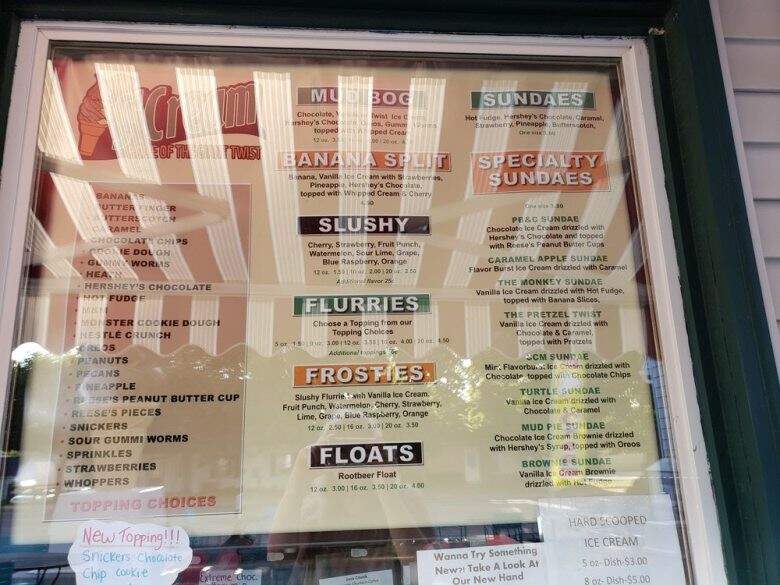 OF THE GIANT TWIST
BANANAS
BUTTERFINGER
BUTTERSCOTCH
CARAMEL
CHOCOLATE CHIPS
COOKIE DOUGH
GUMMY WORMS
HEATH
HERSHEY'S CHOCOLATE
HOT FUDGE
M&M
MONSTER COOKIE DOUGH
NESTLÉ CRUNCH
OREOS
PEANUTS
PECANS
PINEAPPLE
REESE'S PEANUT BUTTER CUP
REESE'S PIECES
SNICKERS
SOUR GUMMI WORMS
SPRINKLES
STRAWBERRIES
WHOPPERS
TOPPING CHOICES
New Topping!!!
Snickers Chocolate
Chip cookie
Extreme Choc.
MUD BOG
Chocolate, Twist Ice Cream,
Hershey's Chocolate, Oreos, Gummi Worms
topped Whipped Cream
12 oz. 20 oz.
BANANA SPLIT
Banana, Vanilla Ice Cream with Strawberries,
Pineapple, Hershey's Chocolate,
topped with Whipped Cream & Cherry
4.50
SLUSHY
Cherry, Strawberry, Fruit Punch,
Watermelon, Sour Lime, Grape,
Blue Raspberry, Orange
12 oz. 1.50 | 16 oz. 2.00 | 20 oz. 2.50
Additional flavor 25¢
FLURRIES
Choose a Topping from our
Topping Choices
5 oz. 12 oz. 3.50 | 16 oz. 4.00 20 oz. 4.50
Additional toppings
FROSTIES
Slushy Flurried with Vanilla Ice Cream.
Fruit Punch, Watermelon, Cherry, Strawberry,
Lime, Grape, Blue Raspberry, Orange
12 oz. 2.50 | 16 oz. 3.00 | 20 oz. 3.50
FLOATS
Rootbeer Float
12 oz. 3.00 | 16 oz. 3.50 | 20 oz. 4.00
Wanna Try Something
New? Take A Look At
Our New Hand
SUNDAES
Hot Fudge, Hershey's Chocolate, Caramel,
Strawberry, Pineapple, Butterscotch,
One size 3.50
SPECIALTY
SUNDAES
One size 3.50
PB&C SUNDAE
Chocolate Ice Cream drizzled with
Hershey's Chocolate and topped
with Reese's Peanut Butter Cups
CARAMEL APPLE SUNDAE
Flavor Burst Ice Cream drizzled with Caramel
THE MONKEY SUNDAE
Vanilla Ice Cream drizzled with Hot Fudge,
topped with Banana Slices,
THE PRETZEL TWIST
Vanilla Ice Cream drizzled with
Chocolate & Caramel,
topped with Pretzels
SUNDAE
Mint Flavorburst Ice Cream drizzled with
Chocolate, topped with Chocolate Chips
TURTLE SUNDAE
Vanilla Ice Cream drizzled with
Chocolate & Caramel
MUD PIE SUNDAE
Chocolate Ice Cream Brownie drizzled
with Hershey's Syrup, topped with Oreos
BROWNIE SUNDAE
Vanilla Ice Cream Brownie
drizzled with Hot Fudge
HARD SCOOPED
ICE CREAM
5 oz- Dish-$3.00
8 oz- Dish-$5.00